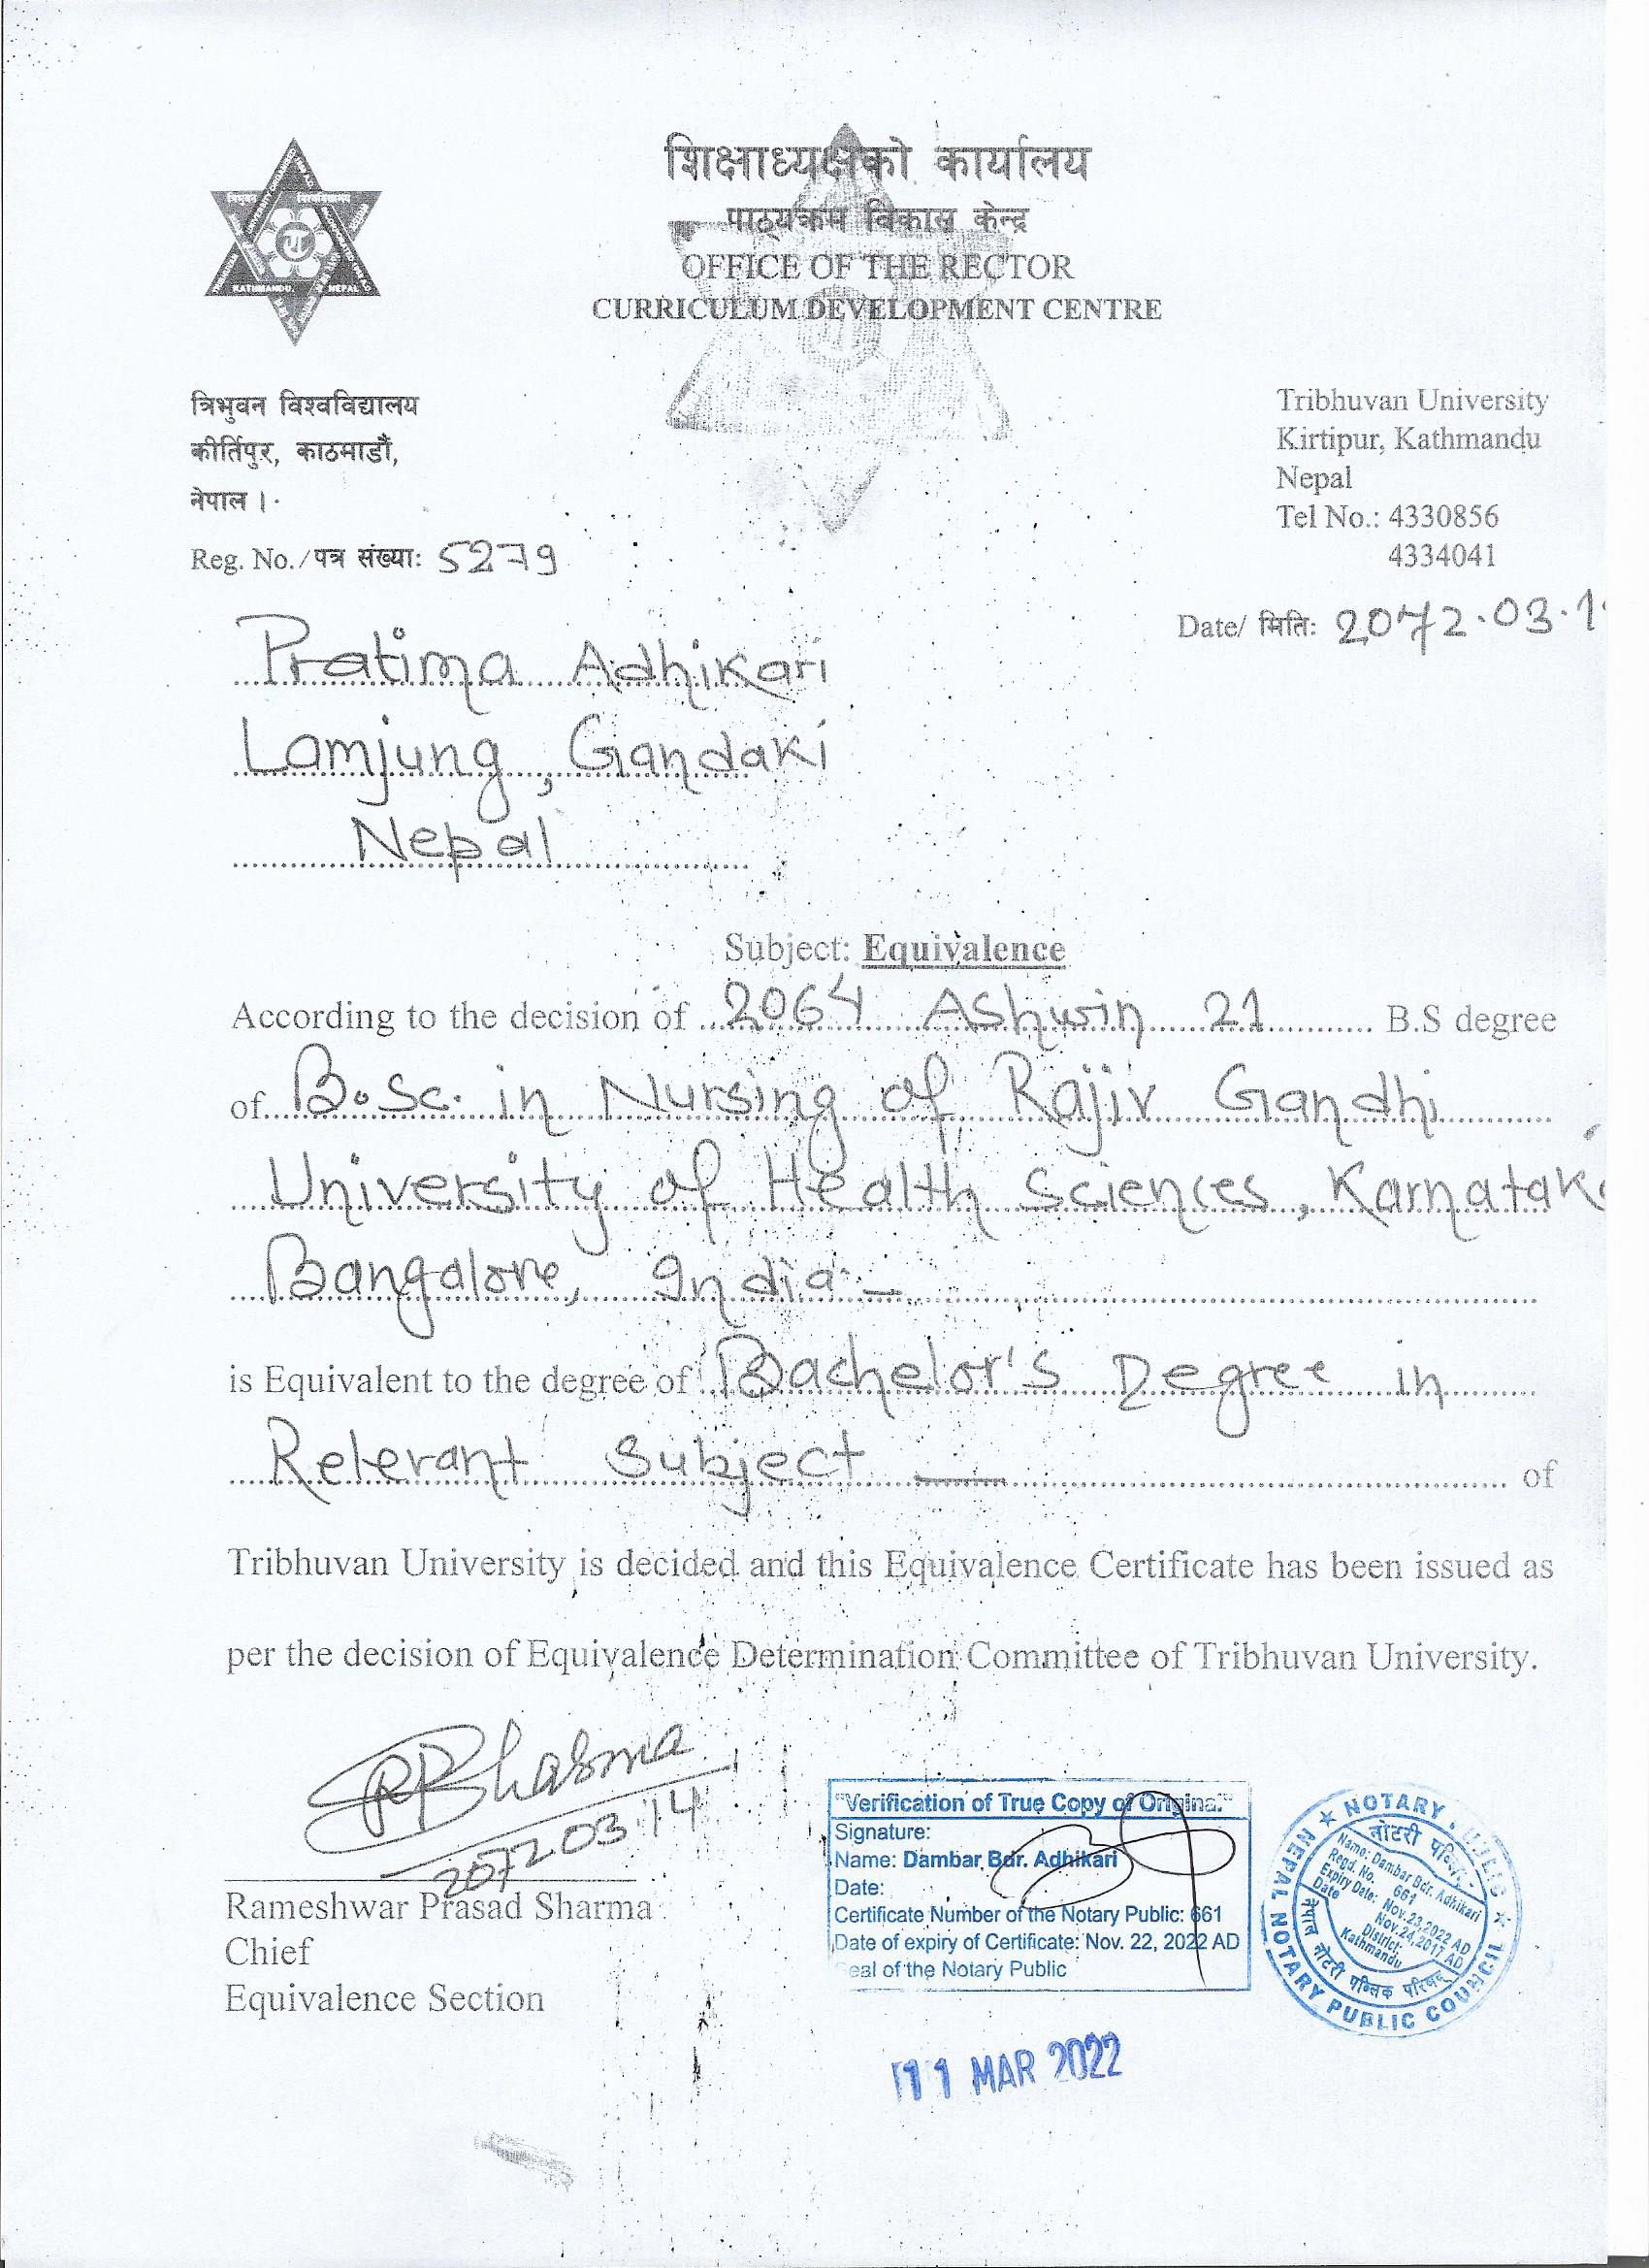 शिक्षाध्यक्षको कार्यालय
पाठ्यक्रम विकास केन्द्र
OFFICE OF THE RECTOR
CURRICULUM DEVELOPMENT CENTRE
KATHMANDU, NEPAL
त्रिभुवन विश्वविद्यालय
कीर्तिपुर, काठमाडौं,
नेपाल ।
Tribhuvan University
Kirtipur, Kathmandu
Nepal
Tel No.: 4330856
4334041
Reg. No./पत्र संख्या: 5279
Date/ मिति: 2072.03.1
Pratima Adhikari
Lamjung, Gandaki
Nepal
Subject: Equivalence
According to the decision of 2064 Ashwin 21 B.S degree
of B.Sc. in Nursing of Rajiv Gandhi
University of Health Sciences, Karnatak
Bangalore, India
is Equivalent to the degree of Bachelor's Degree in
Relevant Subject of
Tribhuvan University is decided and this Equivalence Certificate has been issued as
per the decision of Equivalence Determination Committee of Tribhuvan University.
RPSharma
2072.03.14
Rameshwar Prasad Sharma
Chief
Equivalence Section
"Verification of True Copy of Original"
Signature:
Name: Dambar Bdr. Adhikari
Date:
Certificate Number of the Notary Public: 661
Date of expiry of Certificate: Nov. 22, 2022 AD
Seal of the Notary Public
NOTARY PUBLIC
NEPAL NOTARY PUBLIC COUNCIL
नोटरी पब्लिक
Name: Dambar Bdr. Adhikari
Regd. No. 661
Expiry Date: Nov.23,2022 AD
Date Nov.24,2017 AD
District:
Kathmandu
नेपाल नोटरी पब्लिक परिषद्
11 MAR 2022